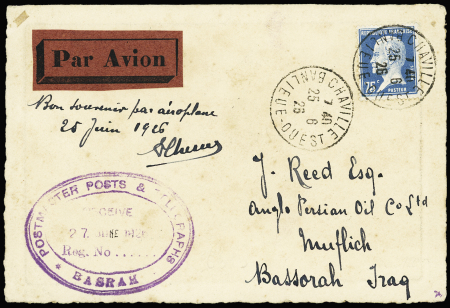 Par Avion
Bon souvenir par aéroplane
25 Juin 1926
CHAVILLE
BANLIEUE-OUEST
7 40
25 6
26
POSTES
75c
PASTEUR
CHAVILLE
7 40
25 6
26
POSTMASTER POSTS & TELEGRAPHS
RECEIVE
27 JUNE
Reg. No......
BASRAH
J. Reed Esq.
Anglo Persian Oil Co Ltd
Muflich
Bassorah Iraq